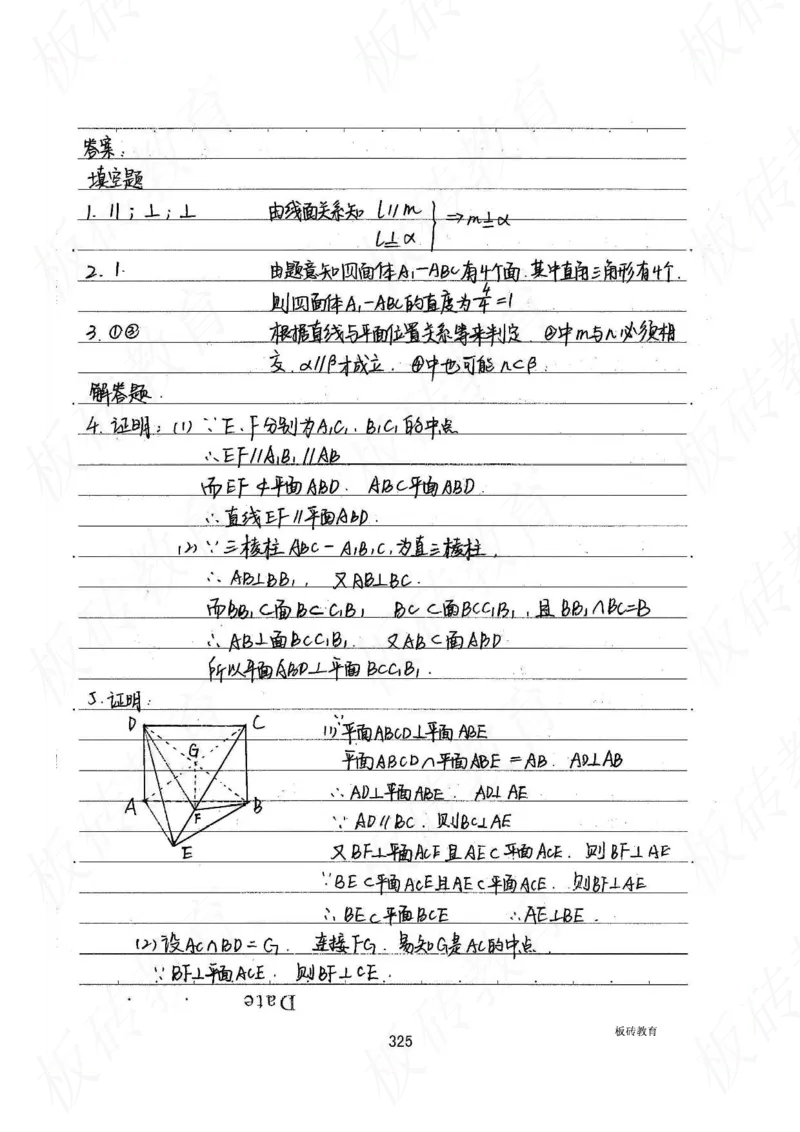 答案：
填空题
1. ∥；⊥；⊥ 由线面关系知 l∥m
l⊥α } ⇒m⊥α
2. 1. 由题意知四面体A₁-ABC有4个面.其中直角三角形有4个.
则四面体A₁-ABC的直度为4/4=1
3. ①② 根据直线与平面位置关系等来判定. ②中m与n必须相
交.α∥β才成立. ④中也可能n⊂β.
解答题.
4. 证明：(1) ∵E、F分别为A₁C₁.B₁C₁的中点
∴EF∥A₁B₁∥AB
而EF⊄平面ABD. AB⊂平面ABD.
∴直线EF∥平面ABD.
(2) ∵三棱柱ABC-A₁B₁C₁为直三棱柱.
∴AB⊥BB₁, 又AB⊥BC.
而BB₁⊂面BCC₁B₁ BC⊂面BCC₁B₁,且BB₁∩BC=B
∴AB⊥面BCC₁B₁. 又AB⊂面ABD
所以平面ABD⊥平面BCC₁B₁.
5. 证明：
D C
G
A B
F
E
(1) ∵平面ABCD⊥平面ABE
平面ABCD∩平面ABE=AB. AD⊥AB
∴AD⊥平面ABE. AD⊥AE
∵AD∥BC. 则BC⊥AE
又BF⊥平面ACE且AE⊂平面ACE. 则BF⊥AE
∵BE⊂平面ACE且AE⊂平面ACE. 则BF⊥AE
∴BE⊂平面BCE ∴AE⊥BE.
(2) 设AC∩BD=G. 连接FG. 易知G是AC的中点.
∵BF⊥平面ACE. 则BF⊥CE.
Date
板砖教育
325